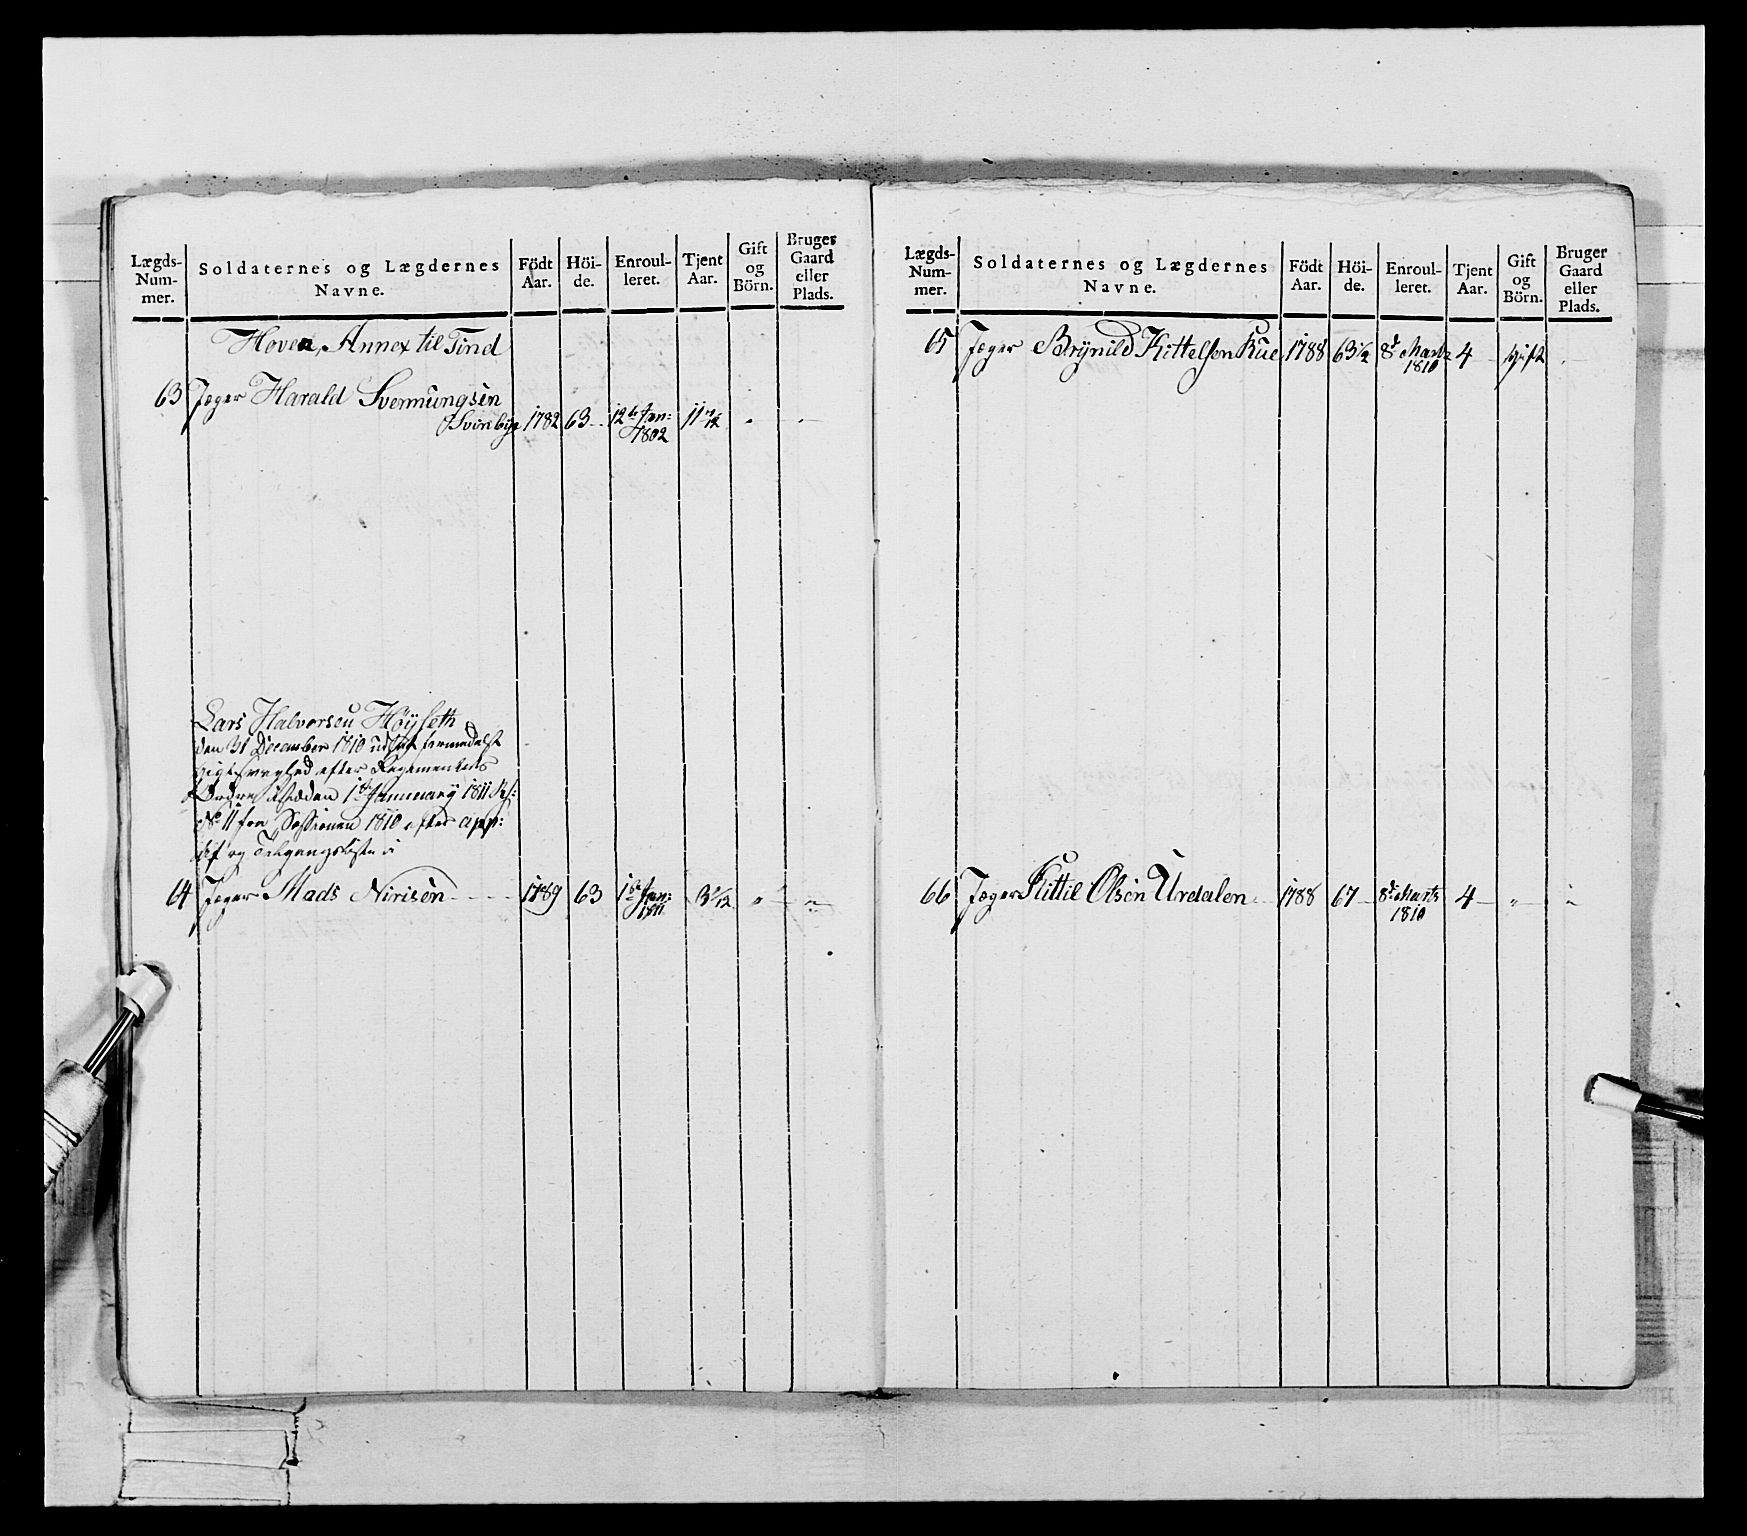 Lægds-Num-mer. Soldaternes og Lægdernes Navne. Födt Aar. Höi-de. Enroul-leret. Tjent Aar. Gift og Börn. Bruger Gaard eller Plads.
Hoven, Annex til Tind
63 Jæger Harald Svennungsen
1782 63 12te Jan: 1802 11 11/12
Lars Halvorsen Höyseth
den 31 December 1810 formedelst
efter Regimentets
Ordre af 1ste Januarÿ 1811
No 11 fra Sessionen 1810 efter app:
og Tilgangsliste
64 Jæger Mads Nirisen 1789 63 1ste Jan: 1811 3 2/12 " "
Lægds-Num-mer. Soldaternes og Lægdernes Navne. Födt Aar. Höi-de. Enroul-leret. Tjent Aar. Gift og Börn. Bruger Gaard eller Plads.
65 Jæger Brÿnild Kittelsen Rue 1788 63½ 8de Marts 1810 4 Gift
66 Jæger Kittil Olsen Urdalen 1788 67 8de Marts 1810 4 " "